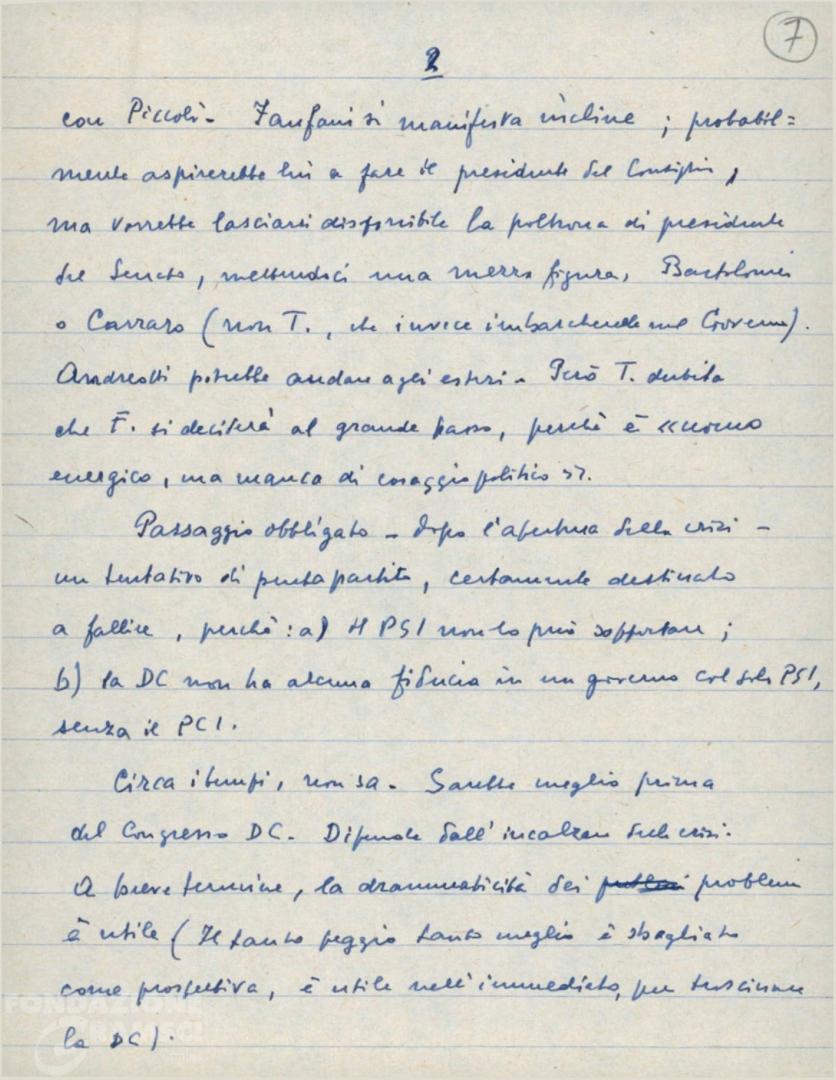 7
2
con Piccoli. Fanfani si manifesta incline ; probabil=
mente aspirerebbe lui a fare il presidente del Consiglio,
ma vorrebbe lasciarsi disponibile la poltrona di presidente
del Senato, mettendoci una mezza figura, Bartolomei
o Carraro (non T., che invece imbarcherebbe nel Governo).
Andreotti potrebbe andare agli esteri. Però T. dubita
che F. si deciderà al grande passo, perchè è «uomo
energico, ma manca di coraggio politico».
Passaggio obbligato - dopo l'apertura della crisi -
un tentativo di pentapartito, certamente destinato
a fallire, perchè: a) il PSI non lo può sopportare;
b) la DC non ha alcuna fiducia in un governo col solo PSI,
senza il PCI.
Circa i tempi, non sa. Sarebbe meglio prima
del Congresso DC. Dipende dall'incalzare della crisi.
A breve termine, la drammaticità dei problemi
è utile (Il tanto peggio tanto meglio è sbagliato
come prospettiva, è utile nell'immediato, per trascinare
la DC).
FONDAZIONE
GRAMSCI